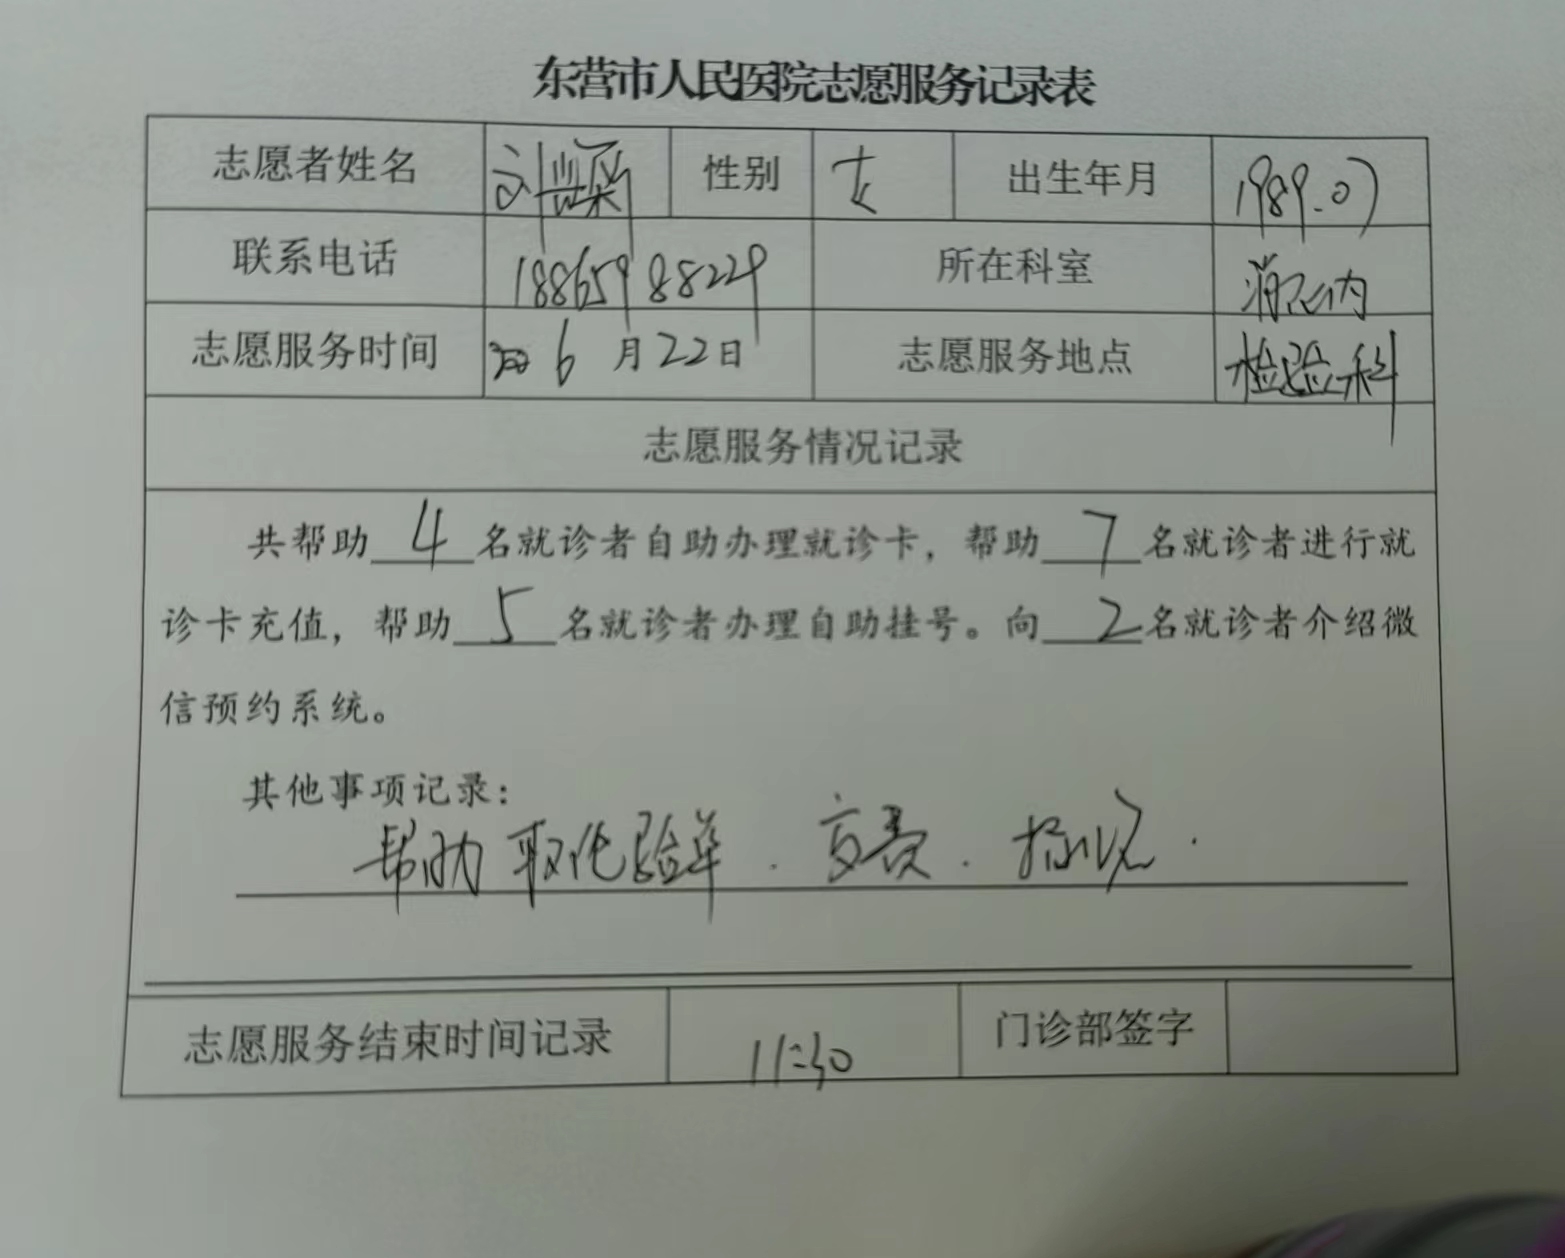 东营市人民医院志愿服务记录表
志愿者姓名 刘 性别 女 出生年月 1989.07
联系电话 18865988229 所在科室 消化内
志愿服务时间 6月22日 志愿服务地点 检验科
志愿服务情况记录
共帮助4名就诊者自助办理就诊卡，帮助7名就诊者进行就
诊卡充值，帮助5名就诊者办理自助挂号。向2名就诊者介绍微
信预约系统。
其他事项记录：
帮助取化验单.交费.
志愿服务结束时间记录 11:30 门诊部签字